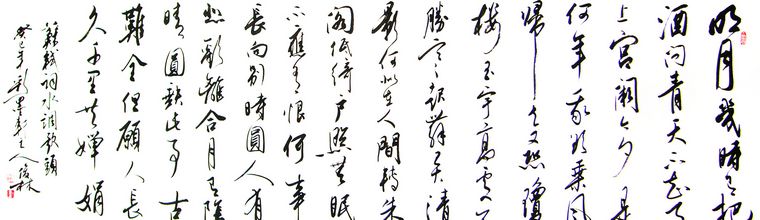 明月幾時有把
酒問青天不知天
上宮闕今夕是
何年我欲乘風
歸去又恐瓊
樓玉宇高處不
勝寒起舞弄清
影何似在人間轉朱
閣低綺戶照無眠
不應有恨何事
長向別時圓人有
悲歡離合月有陰
晴圓缺此事古
難全但願人長
久千里共嬋娟
蘇軾詞水調歌頭
癸巳年